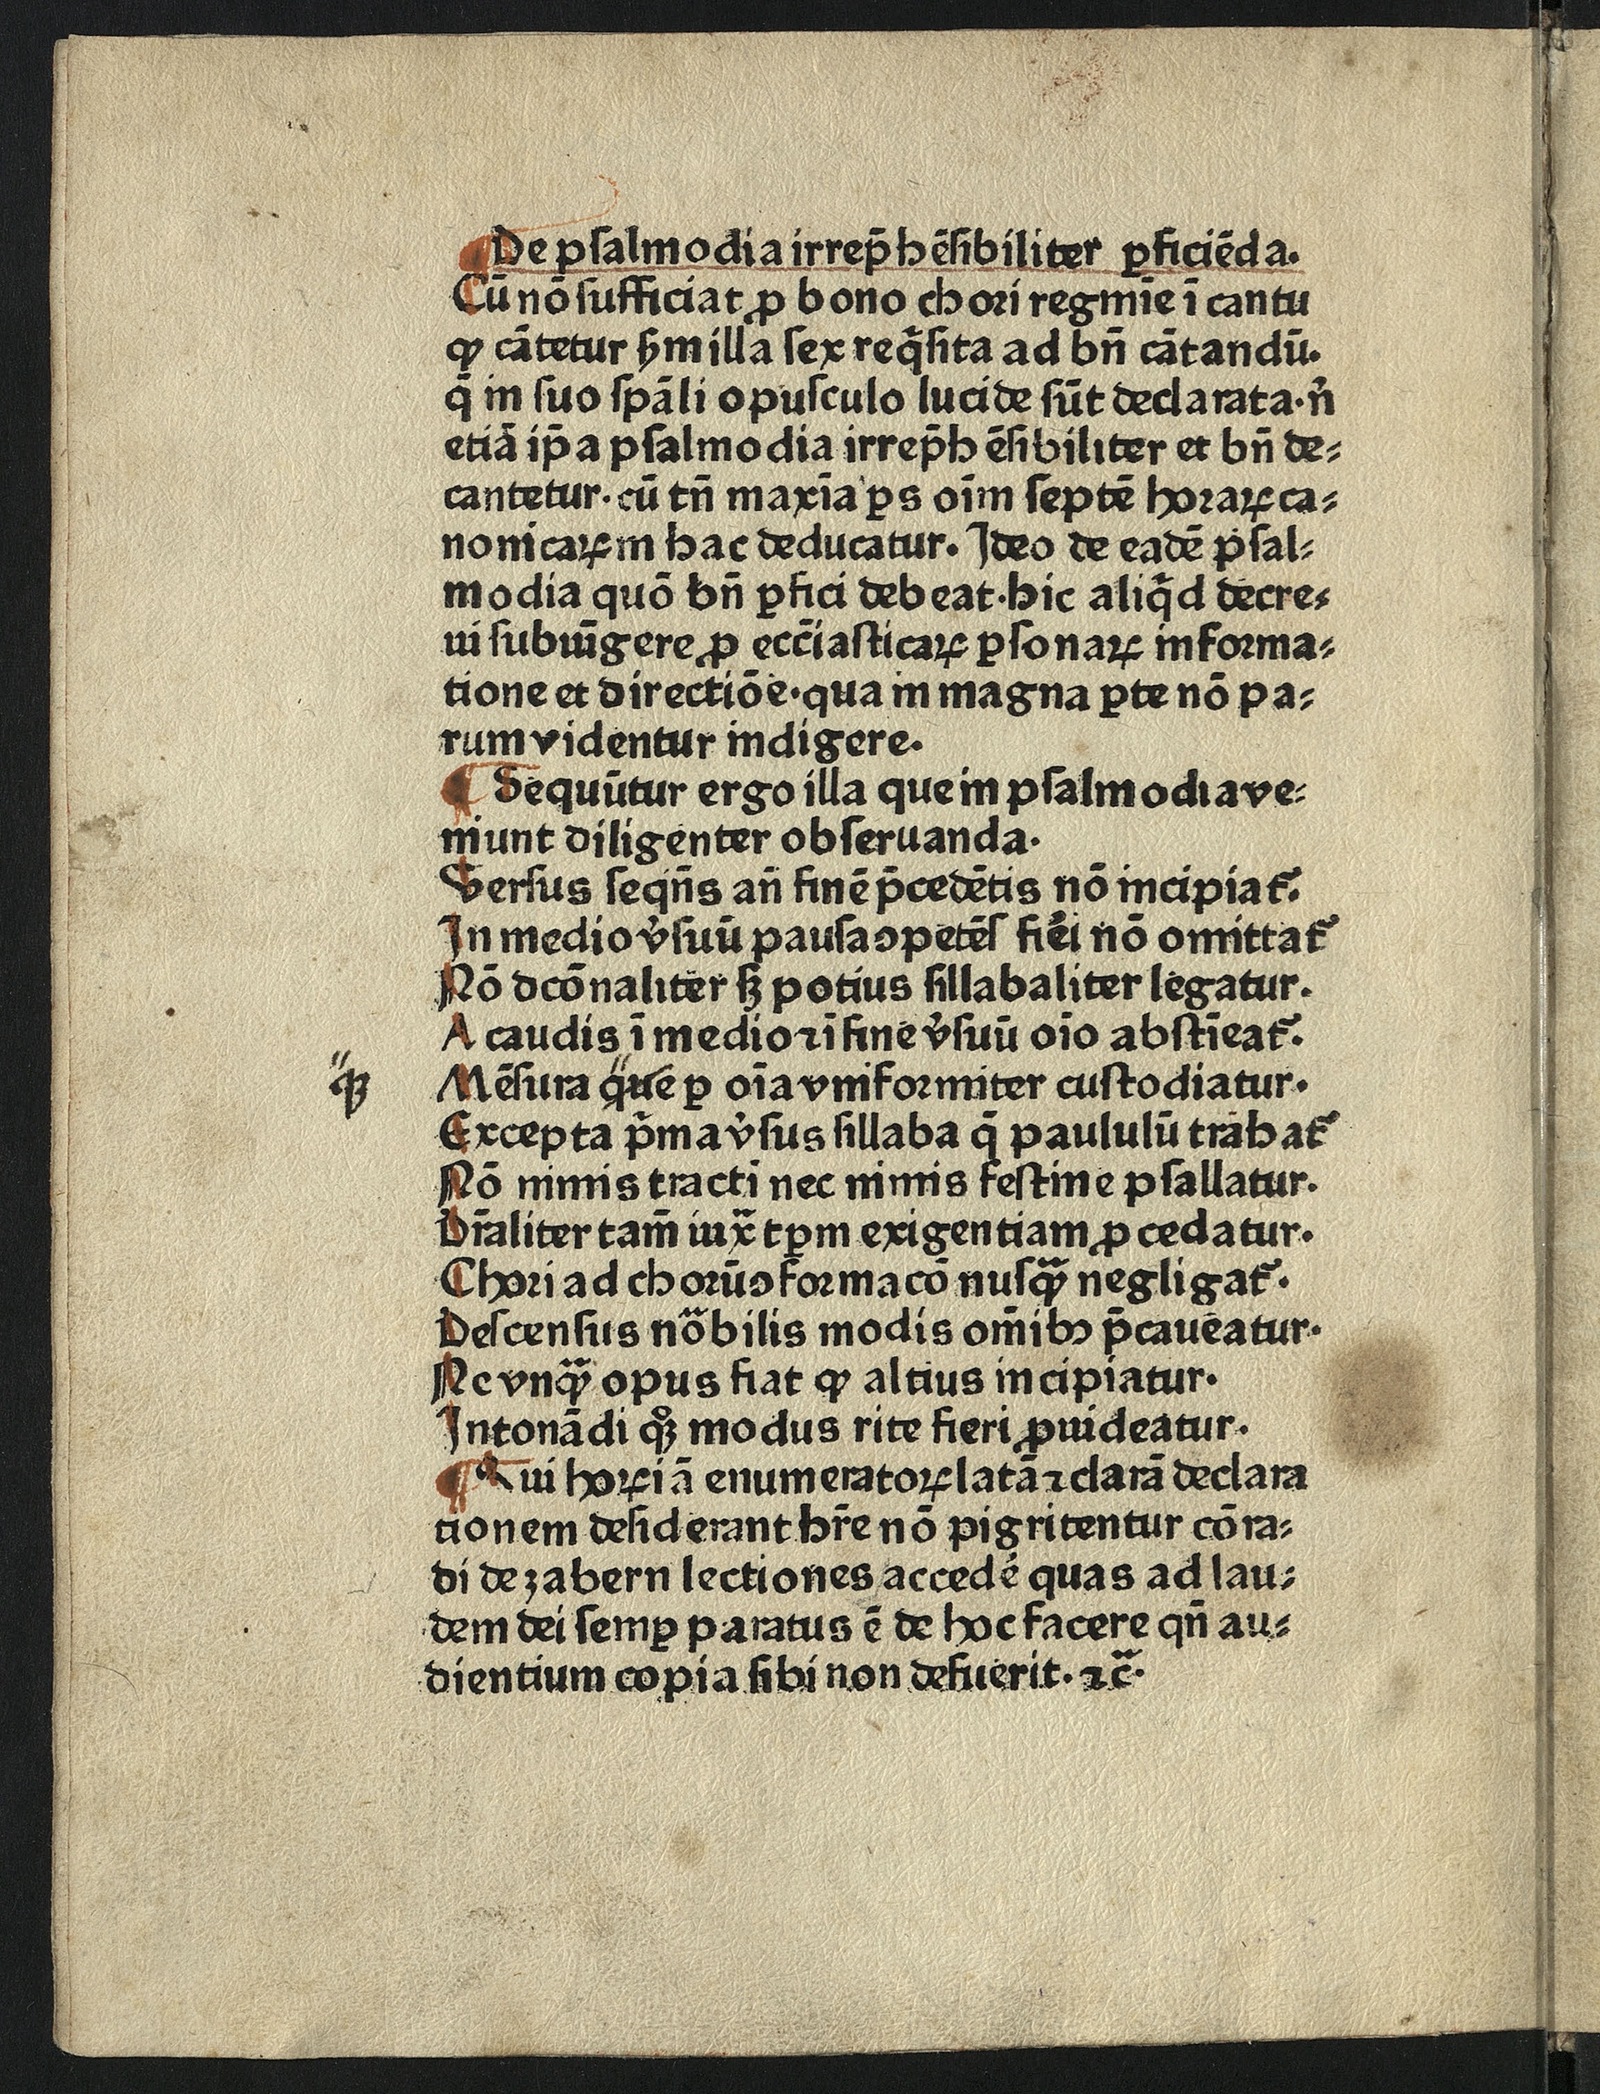 De pſalmodia irrep̄hēſibiliter ꝑficiēda.
Cū nō ſufficiat ꝓ bono chori regmīe ī cantu
ꝙ cātetur ẜm illa ſex req̄ſita ad bn̄ cātandū.
q̄ in ſuo ſpāli opuſculo lucide ſūt declarata·n̄
etiā ip̄a pſalmodia irrep̄hēſibiliter et bn̄ de⸗
cantetur·cū tn̄ maxīa ꝑs oīm ſeptē horaꝝ ca⸗
nonicaꝝ in hac deducatur. Ideo de eadē pſal⸗
modia quō bn̄ ꝑfici debeat·hic aliq̄d decre⸗
ui ſubiūgere ꝓ ecc̄iaſticaꝝ ꝑſonaꝝ informa⸗
tione et directiōe·qua in magna ꝑte nō pa⸗
rum videntur indigere.
Sequūtur ergo illa que in pſalmodia ve⸗
niunt diligenter obſeruanda·
Verſus ſeqn̄s an̄ finē p̄cedētis nō incipiat᷑.
In medio v̓ſuū pauſa ꝯpetēſ fieri nō omittat᷑
Nō dcōnaliter ſꝫ potius ſillabaliter legatur.
A caudis ī medio ⁊ ī fine v̓ſuū oīo abſtīeat᷑.
q̈ꝫ Mēſura q̈ue ꝑ oīa vniformiter cuſtodiatur.
Excepta p̄ma v̓ſus ſillaba q̄ paululū trahat᷑
Nō nimis tracti nec nimis feſtine pſallatur.
Dr̄aliter tam̄ iux̄ tꝑm exigentiam ꝓcedatur.
Chori ad chorū ꝯformacō nuſꝙ̈ negligat᷑.
Deſcenſus nōbilis modis om̄ibꝰ p̄caueatur.
Ne vnꝙ̈ opus fiat ꝙ altius incipiatur.
Intonādi qͦꝫ modus rite fieri ꝓuideatur.
Qui hoꝝ iā enumeratoꝝ latā ⁊ clarā declara
tionem deſiderant hr̄e nō pigritentur cōra⸗
di de zabern lectiones accedē quas ad lau⸗
dem dei ſemꝑ paratus ē de hoc facere qn̄ au⸗
dientium copia ſibi non defuerit. ⁊c̄.